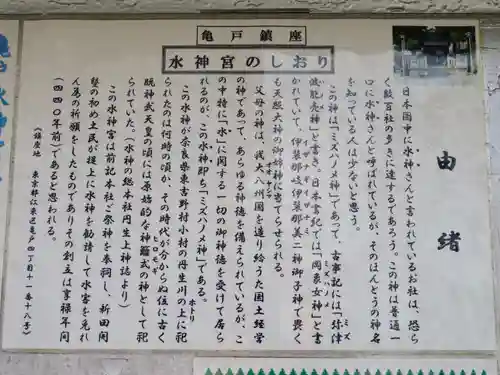 亀戸鎮座
水神宮のしおり
由緒
日本国中に水神さんと言われているお社は、恐ら
く数百社の多きに達するであろう。この神は普通一
口に水神さんと呼ばれているが、そのほんとうの神名
を知っている人は少ないと思う。
この神は「ミズハノメ神」であって、古事記には「弥津
波能売神」と書き。日本書紀では「罔象女神」と書
かれていて、伊装那岐伊装那美二神御子神で畏く
も天照大神の御姉神に当てらせられる。
父母の神は、我大八州国を造り給うた国土経営
の神であって、あらゆる神徳を備えられているが、こ
の中特に「水」に関する一切の御神徳を受けて居ら
れるのが、この水神即ち「ミズハノメ神」である。
この水神が奈良県東吉野村小村の丹生川の上に祀
られたのは何時の頃か、その時代が分からぬ位に古く
既神武天皇の頃には原始的な神籬式の神として祀
られていた。（水神の総本社丹生上神誌より）
この水神宮は前記本社ご祭神を奉祠し、新田開
墾の初め土民が堤上に水神を勧請して水害を免れ
ん為の祈願をしたものでありその創立は享禄年間
（四四〇年前）であると思われる。
《鎮座地　東京都江東区亀戸四丁目十一番十八号》